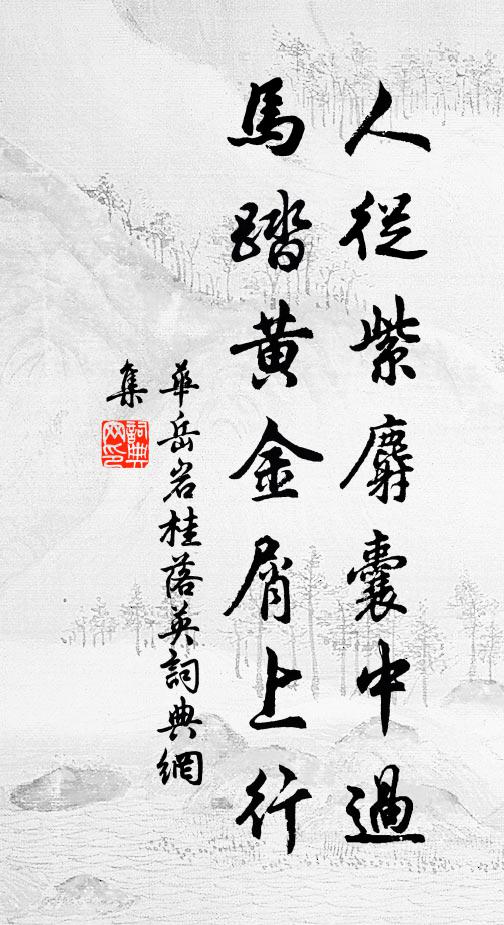 人從紫麝囊中過
馬踏黃金屑上行
華岳岩桂落英詞典網
集
詞典
网印